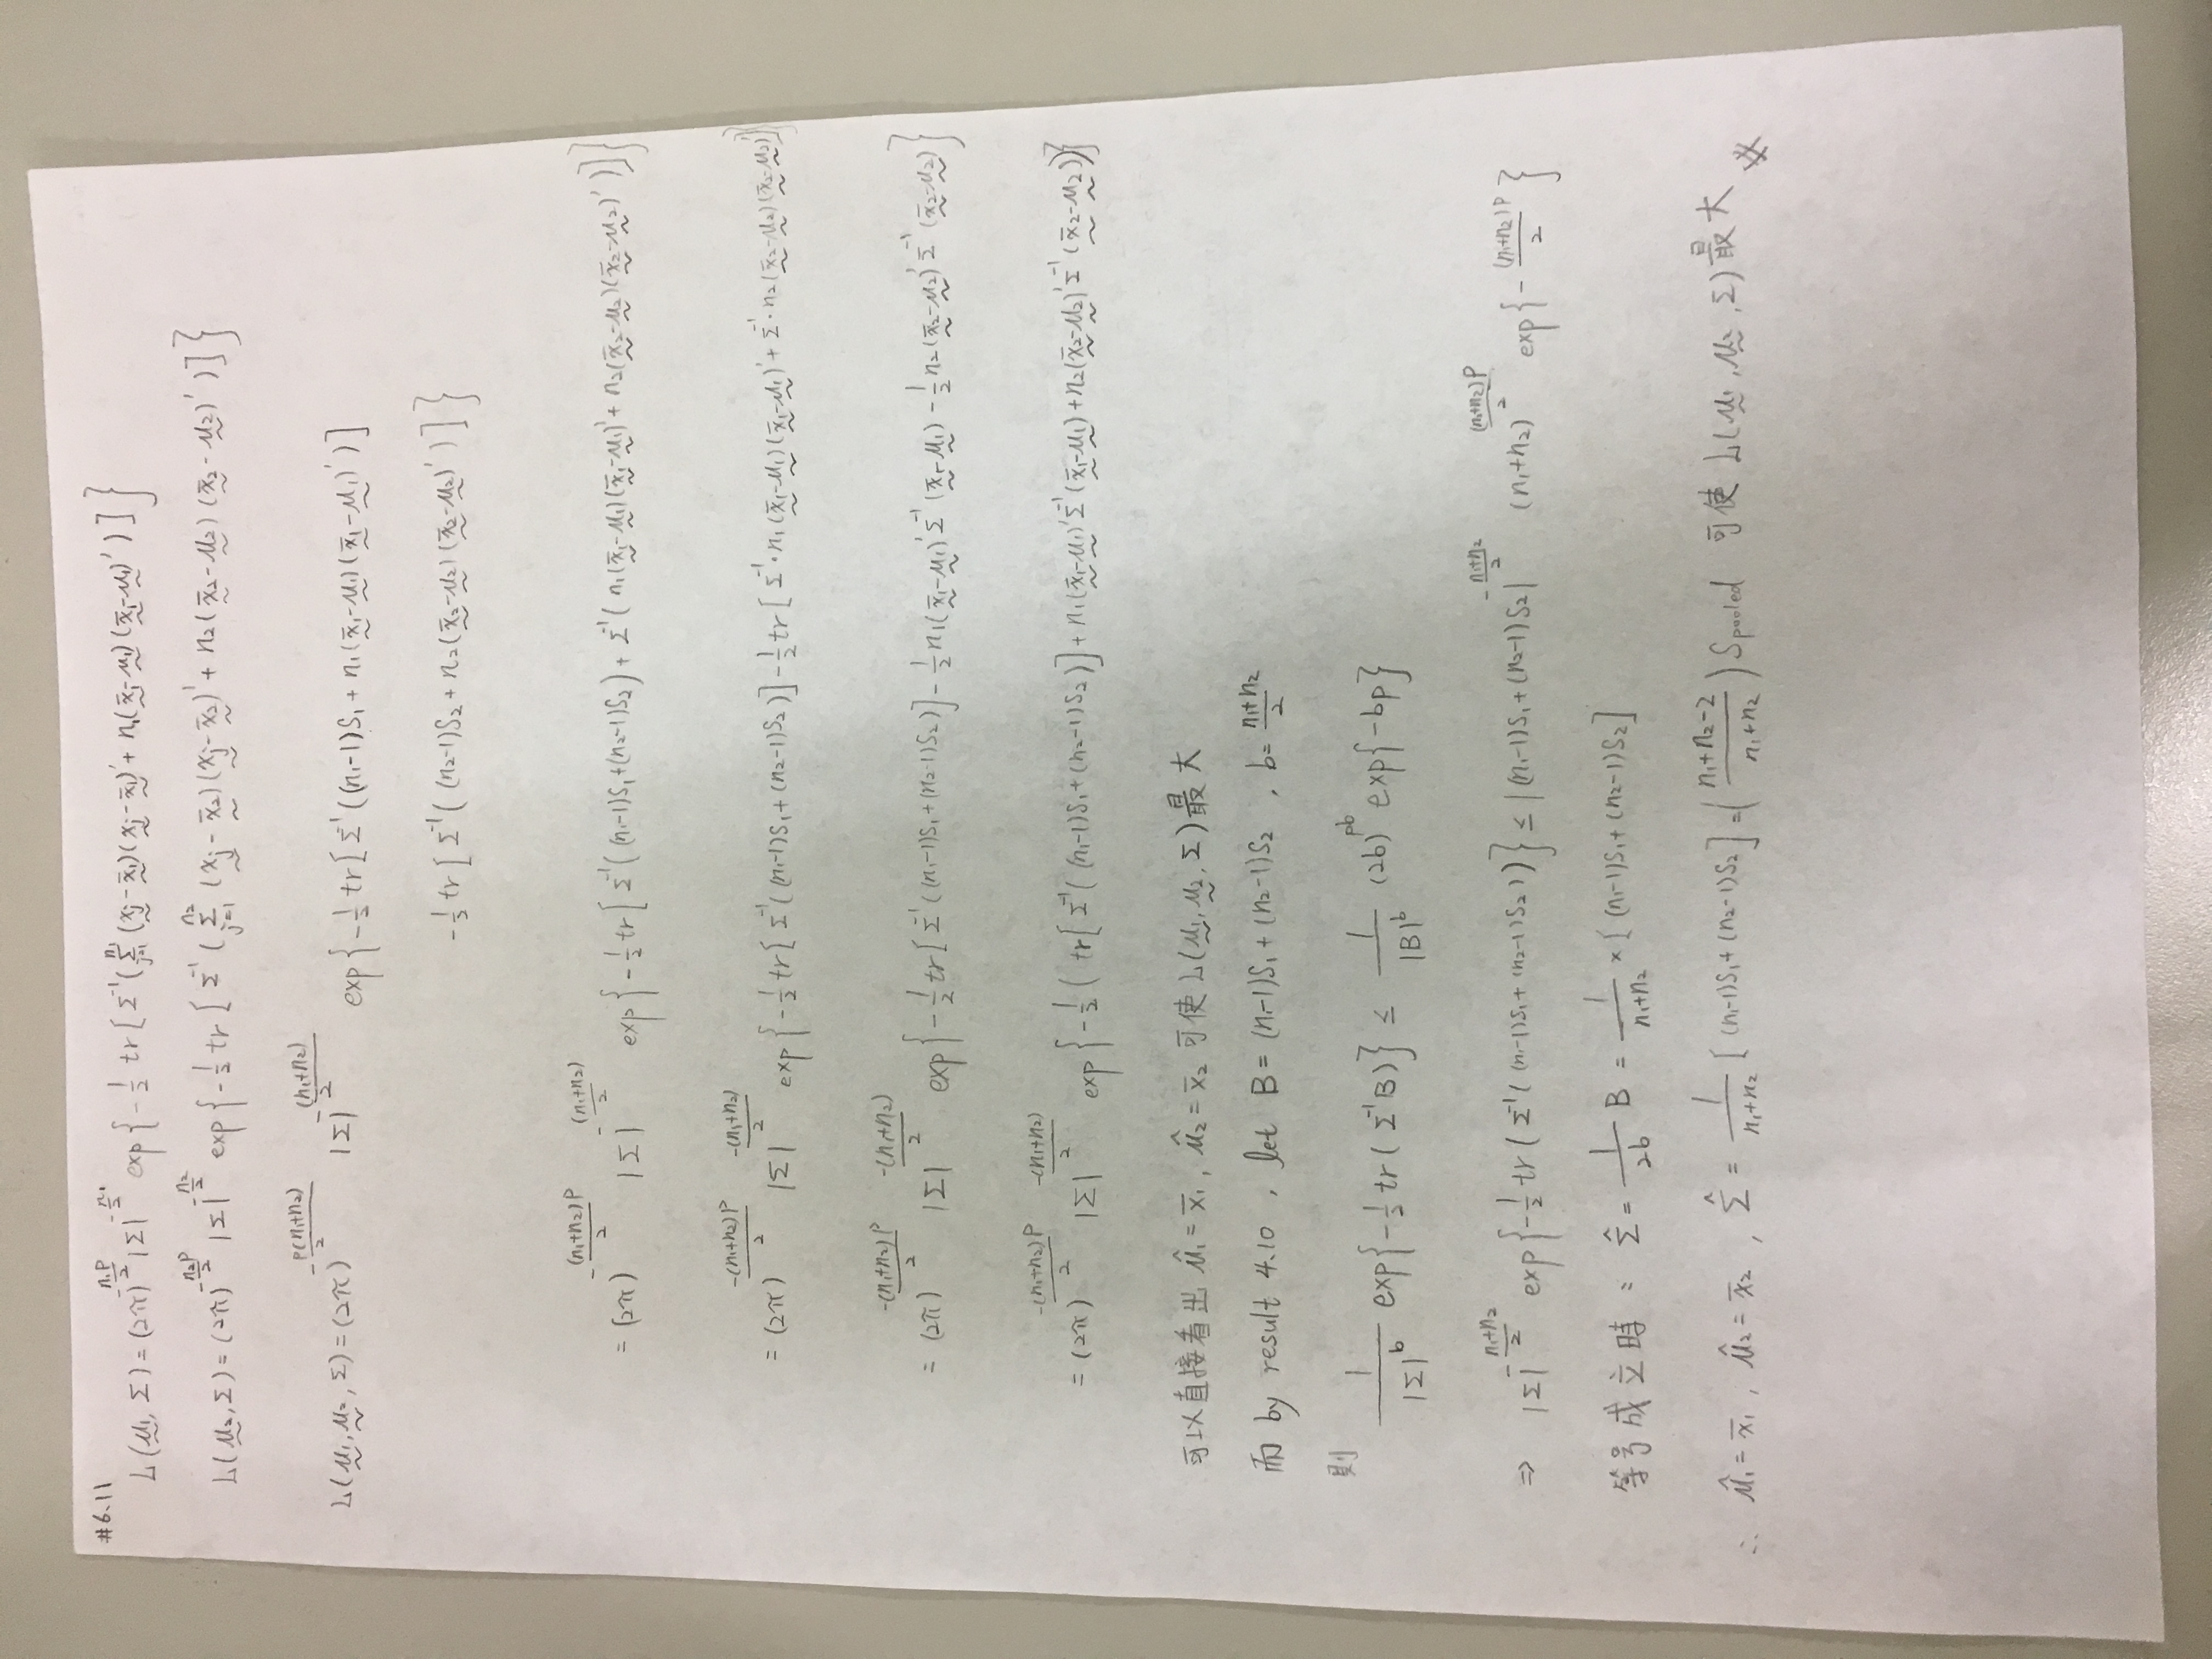 #6.11
L(μ₁, Σ) = (2π)^{-n₁p/2} |Σ|^{-n₁/2} exp{ -1/2 tr[ Σ⁻¹( Σ_{j=1}^{n₁} (xⱼ - x̄₁)(xⱼ - x̄₁)' + n₁(x̄ⱼ - μ₁)(x̄₁ - μ₁)' ) ] }
L(μ₂, Σ) = (2π)^{-n₂p/2} |Σ|^{-n₂/2} exp{ -1/2 tr[ Σ⁻¹( Σ_{j=1}^{n₂} (xⱼ - x̄₂)(xⱼ - x̄₂)' + n₂(x̄₂ - μ₂)(x̄₂ - μ₂)' ) ] }
L(μ₁, μ₂, Σ) = (2π)^{-p(n₁+n₂)/2} |Σ|^{-(n₁+n₂)/2} exp{ -1/2 tr[ Σ⁻¹( (n₁-1)S₁ + n₁(x̄₁-μ₁)(x̄₁-μ₁)' ) ]
-1/2 tr[ Σ⁻¹( (n₂-1)S₂ + n₂(x̄₂-μ₂)(x̄₂-μ₂)' ) ] }
= (2π)^{-(n₁+n₂)p/2} |Σ|^{-(n₁+n₂)/2} exp{ -1/2 tr[ Σ⁻¹( (n₁-1)S₁+(n₂-1)S₂ ) + Σ⁻¹( n₁(x̄₁-μ₁)(x̄₁-μ₁)' + n₂(x̄₂-μ₂)(x̄₂-μ₂)' ) ] }
= (2π)^{-(n₁+n₂)p/2} |Σ|^{-(n₁+n₂)/2} exp{ -1/2 tr[ Σ⁻¹( (n₁-1)S₁+(n₂-1)S₂ ) ] - 1/2 tr[ Σ⁻¹·n₁(x̄₁-μ₁)(x̄₁-μ₁)' + Σ⁻¹·n₂(x̄₂-μ₂)(x̄₂-μ₂)' ] }
= (2π)^{-(n₁+n₂)p/2} |Σ|^{-(n₁+n₂)/2} exp{ -1/2 tr[ Σ⁻¹( (n₁-1)S₁+(n₂-1)S₂ ) ] - 1/2 n₁(x̄₁-μ₁)'Σ⁻¹(x̄₁-μ₁) - 1/2 n₂(x̄₂-μ₂)'Σ⁻¹(x̄₂-μ₂) }
= (2π)^{-(n₁+n₂)p/2} |Σ|^{-(n₁+n₂)/2} exp{ -1/2 ( tr[ Σ⁻¹( (n₁-1)S₁+(n₂-1)S₂ ) ] + n₁(x̄₁-μ₁)'Σ⁻¹(x̄₁-μ₁) + n₂(x̄₂-μ₂)'Σ⁻¹(x̄₂-μ₂) ) }
可以直接看出 μ̂₁ = x̄₁, μ̂₂ = x̄₂ 可使 L(μ₁, μ₂, Σ) 最大
而 by result 4.10 , let B = (n₁-1)S₁ + (n₂-1)S₂ , b = (n₁+n₂)/2
則
1/|Σ|^b exp{ -1/2 tr( Σ⁻¹B ) } ≤ 1/|B|^b (2b)^{pb} exp{-bp}
⇒ |Σ|^{-(n₁+n₂)/2} exp{ -1/2 tr( Σ⁻¹( (n₁-1)S₁ + (n₂-1)S₂ ) ) } ≤ |(n₁-1)S₁ + (n₂-1)S₂|^{-(n₁+n₂)/2} (n₁+n₂)^{(n₁+n₂)p/2} exp{ -(n₁+n₂)p/2 }
等号成立時 : Σ̂ = 1/2b B = 1/(n₁+n₂) × [ (n₁-1)S₁ + (n₂-1)S₂ ]
∴ μ̂₁ = x̄₁ , μ̂₂ = x̄₂ , Σ̂ = 1/(n₁+n₂) [ (n₁-1)S₁ + (n₂-1)S₂ ] = ( (n₁+n₂-2)/(n₁+n₂) ) S_pooled 可使 L(μ₁, μ₂, Σ) 最大 ※